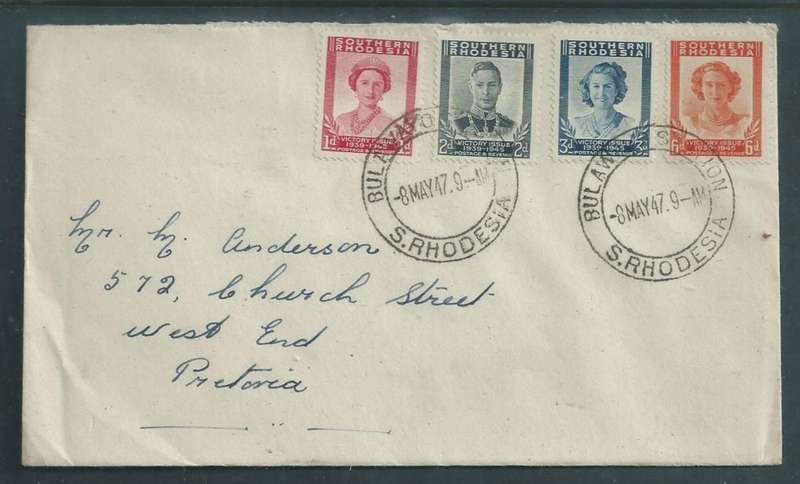 SOUTHERN
RHODESIA
1d 1d
VICTORY ISSUE
1939-1945
POSTAGE & REVENUE
SOUTHERN
RHODESIA
2d 2d
VICTORY ISSUE
1939-1945
POSTAGE & REVENUE
SOUTHERN
RHODESIA
3d 3d
VICTORY ISSUE
1939-1945
POSTAGE & REVENUE
SOUTHERN
RHODESIA
6d 6d
VICTORY ISSUE
1939-1945
POSTAGE & REVENUE
BULAWAYO
-8 MAY 47. 9-AM
S. RHODESIA
-8 MAY 47. 9-AM
S. RHODESIA
Mr. M. Anderson
572, Church Street
West End
Pretoria